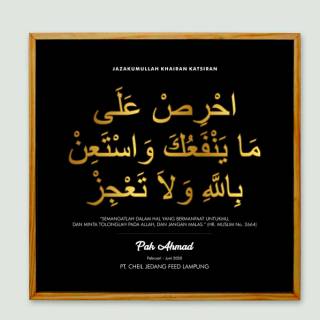 JAZAKUMULLAH KHAIRAN KATSIRAN
احْرِصْ عَلَى
مَا يَنْفَعُكَ وَاسْتَعِنْ
بِاللَّهِ وَلَا تَعْجِزْ
"SEMANGATLAH DALAM HAL YANG BERMANFAAT UNTUKMU,
DAN MINTA TOLONGLAH PADA ALLAH, DAN JANGAN MALAS." (HR. MUSLIM No. 2664)
Pak Ahmad
Februari - Juni 2020
PT. CHEIL JEDANG FEED LAMPUNG